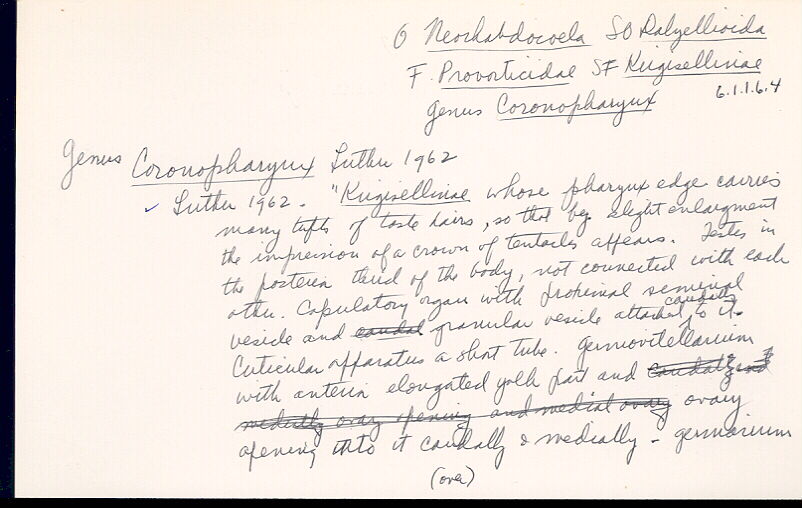 O Neorhabdocoela SO Dalyellioida
F. Provorticidae SF Kirgisellinae
6.1.1.6.4
Genus Coronopharynx
Genus Coronopharynx Luther 1962
✓ Luther 1962. "Kirgisellinae whose pharynx edge carries
many tufts of taste hairs, so that by slight enlargment
the impression of a crown of tentacles appears. Testes in
the posterior third of the body, not connected with each
other. Copulatory organ with proximal seminal
vesicle and caudal granular vesicle attached caudally to it.
Cuticular apparatus a short tube. Germovitellarium
with anterior elongated yolk part and caudally and
medially ovary opening and medial ovary ovary
opening into it caudally & medially - germarium
(over)